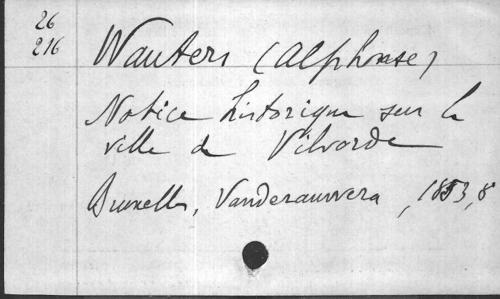 26
216
Wauters (Alphonse)
Notice historique sur la
ville de Vilvorde
Bruxelles, Vanderauwera, 1853, 8